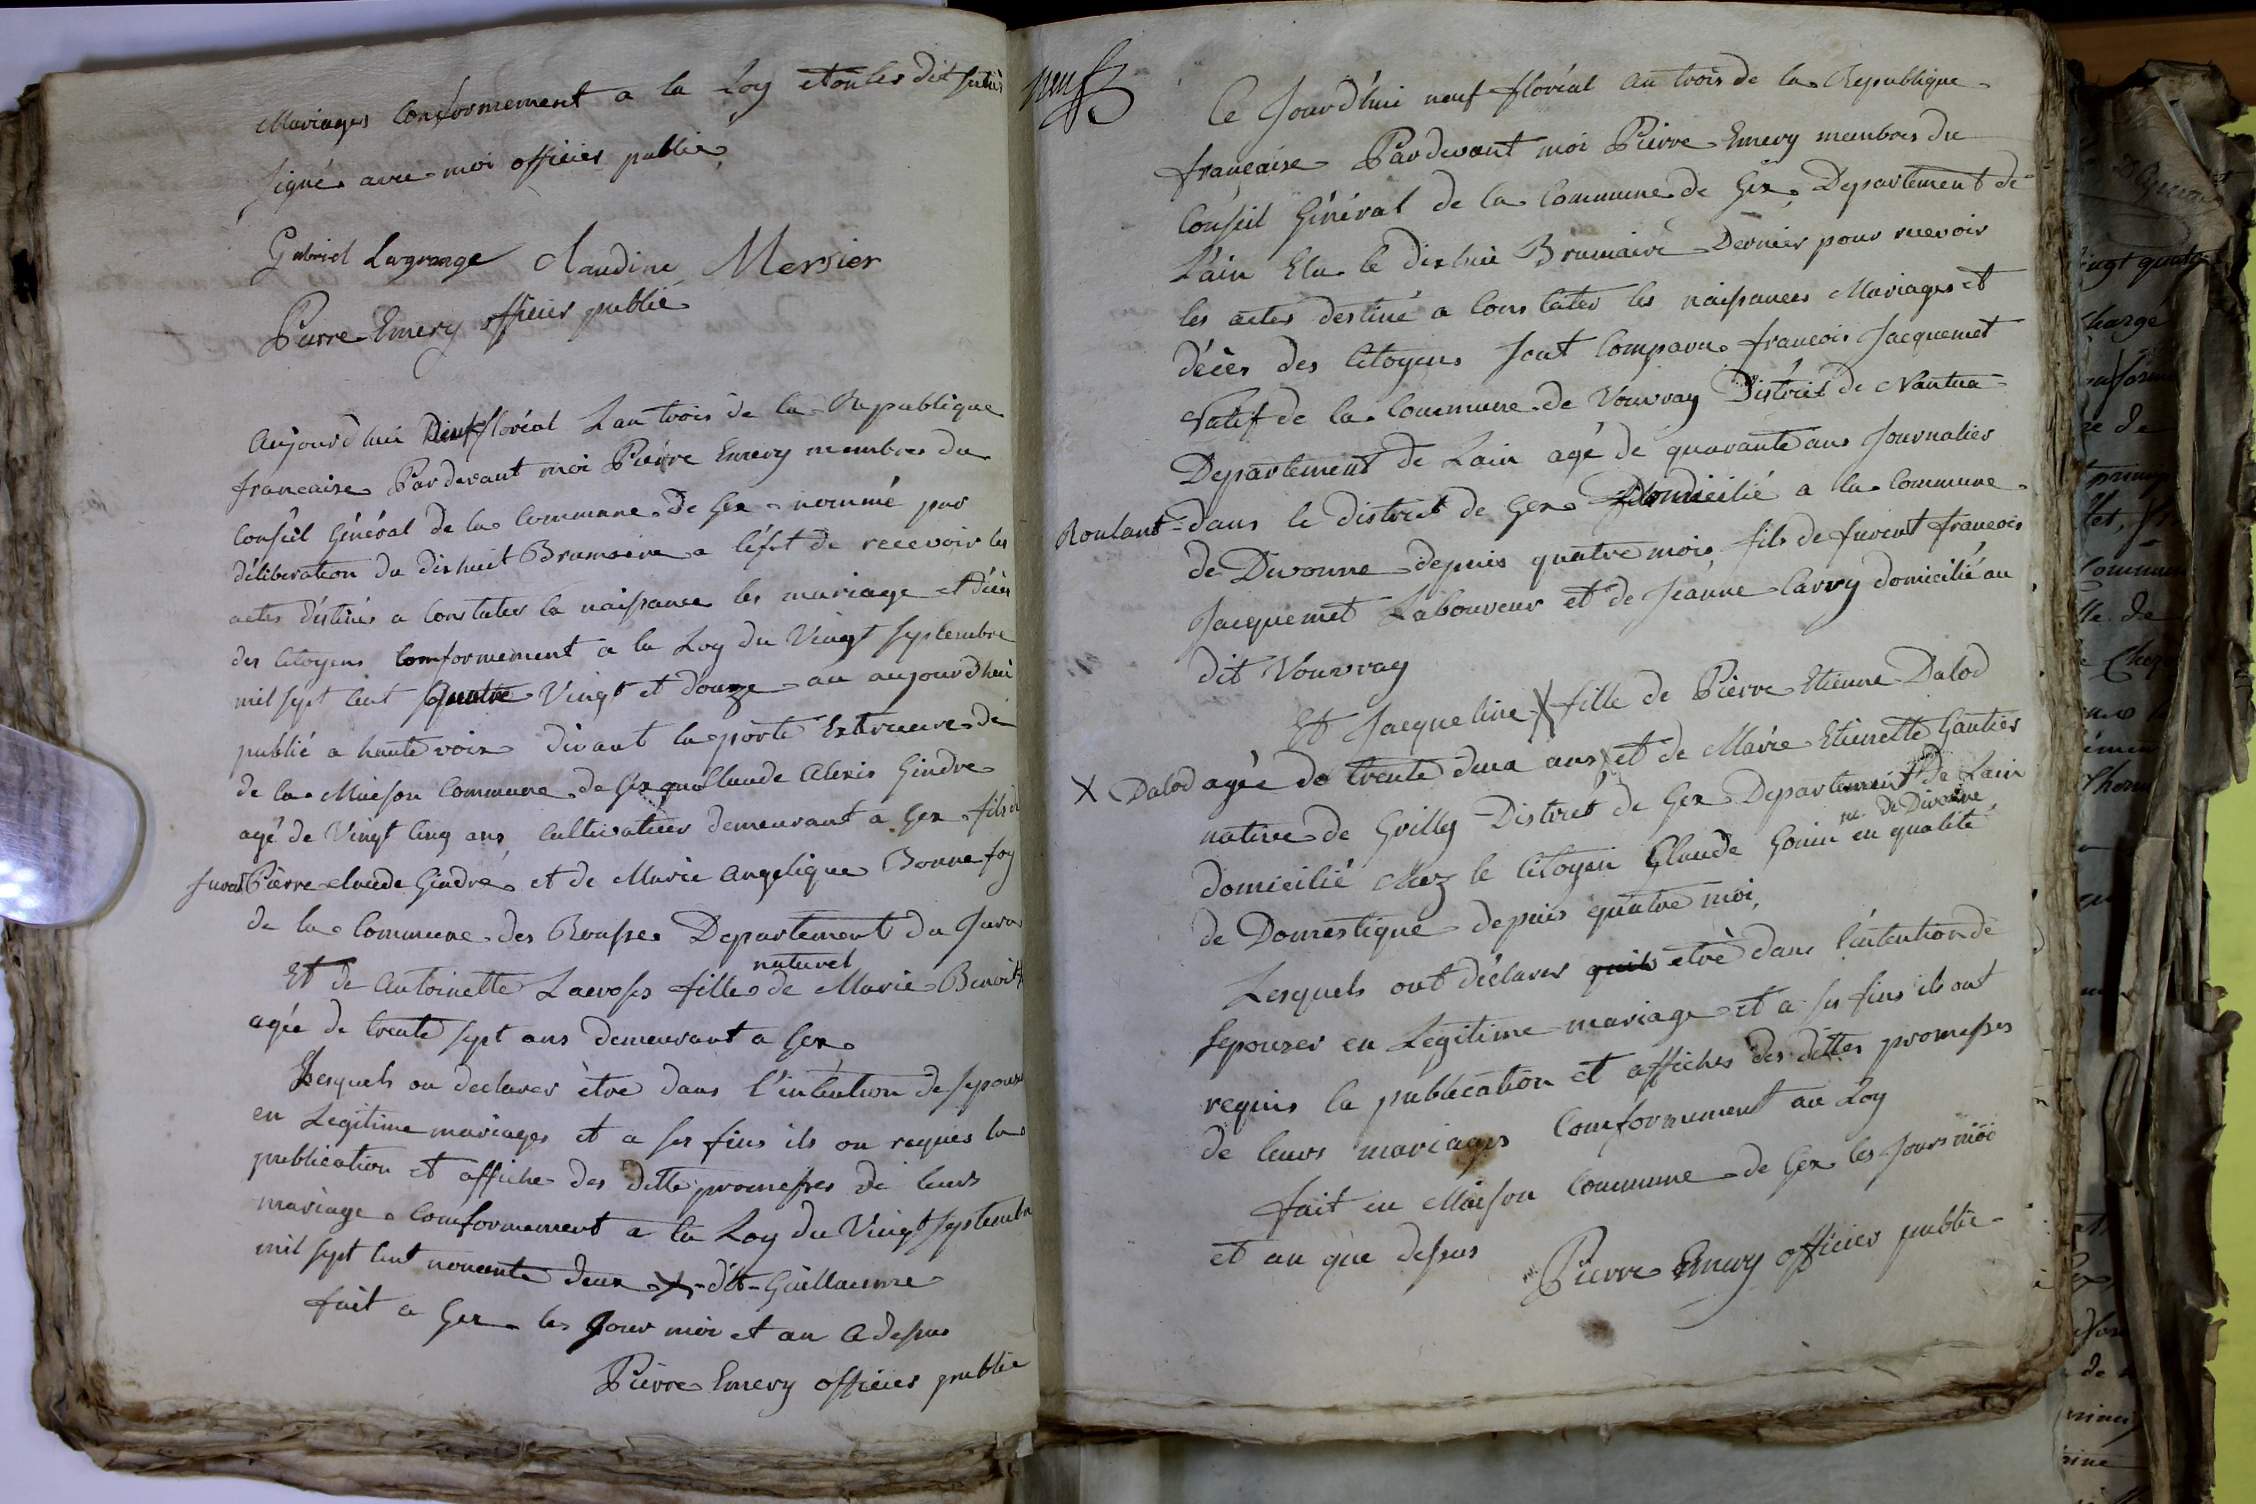 Mariages Conformement a la Loy et ont les dit futurs
signé avec moi officier public
Gabriel Lagrange Claudine Mersier
Pierre Emery officier public
Aujourd'hui neuf floréal L'an trois de la Republique
francaise Pardevant moi Pierre Emery membres du
Conseil Général de la Commune de Gex nommé par
délibération du dixhuit Brumaire a l'éfet de recevoir les
actes déstinés a Constater la naissance les mariage et décès
des Citoyens Comformement a la Loy du Vingt septembre
mil sept Cent Quatre Vingt et douze au aujourd'hui
publié a haute voix divant la porte Extrieure de
de la Maison Commune de Gex que Claude Alexis Gindre
agé de Vingt Cinq ans Cultivateur demeurant a Gex fils de
Pierre Claude Gindre et de Marie Angelique Bonnefoy
de la Commune des Rousse Departement du Jura
naturel
Et de Antoinette Lacroses fille de Marie Benoit
agée de trente sept ans demeurant a Gex
Lesquels on declarer être dans l'intention de sepouser
en Legitime mariages et a ses fins ils on requis la
publication et affiche des ditte promesses de leurs
mariage Comformement a la Loy du Vingt septembre
mil sept Cent nonente deux X dit Guillaume
fait a Gex les Jour moi et an a dessus
Pierre Emery officier public
neuf
Ce Jourd'hui neuf floréal an trois de la Republique
francaise Pardevant moi Pierre Emery membres du
Conseil Général de la Commune de Gex Departement de
L'ain Elu le dixhuit Brumaire Dernier pour recevoir
les actes destiné a Constater les naissances Mariages et
décès des Citoyens sont Comparu francois Jacquemet
Natif de la Commune de Vouvray District de Nantua
Departement de Lain agé de quarante ans Journalier
Roulant dans le district de Gex Domicilié a la Commune
de Divonne depuis quatre mois fils de furent francois
Jacquemet Laboureur et de Jeanne Carry domicilié au
dit Vouvray
Et Jacqueline X fille de Pierre Etienne Dalod
X Dalod agée de trente deux ans et de Marie Etienette Gautier
native de Grilly District de Gex Departement de Lain
de Divonne
domicilié chez le Citoyen Claude Gonin en qualité
de Domestique depuis quatre moi,
Lesquels ont déclarer quils etre dans l'intention de
sepouser en Legitime mariage et a ses fins ils ont
requis la publication et affiches des dittes promesses
de leurs mariages Comformement au Loy
fait en Maison Commune de Gex les Jours moi
et an que dessus
Pierre Emery officier public